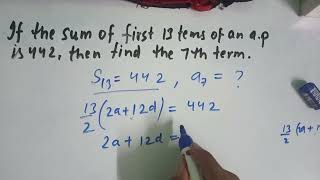 If the sum of first 13 tems of an a.p
is 442, then find the 7th term.
S₁₃ = 442, a₇ = ?
13/2 (2a+12d) = 442
2a + 12d =
13/2 (2a+1